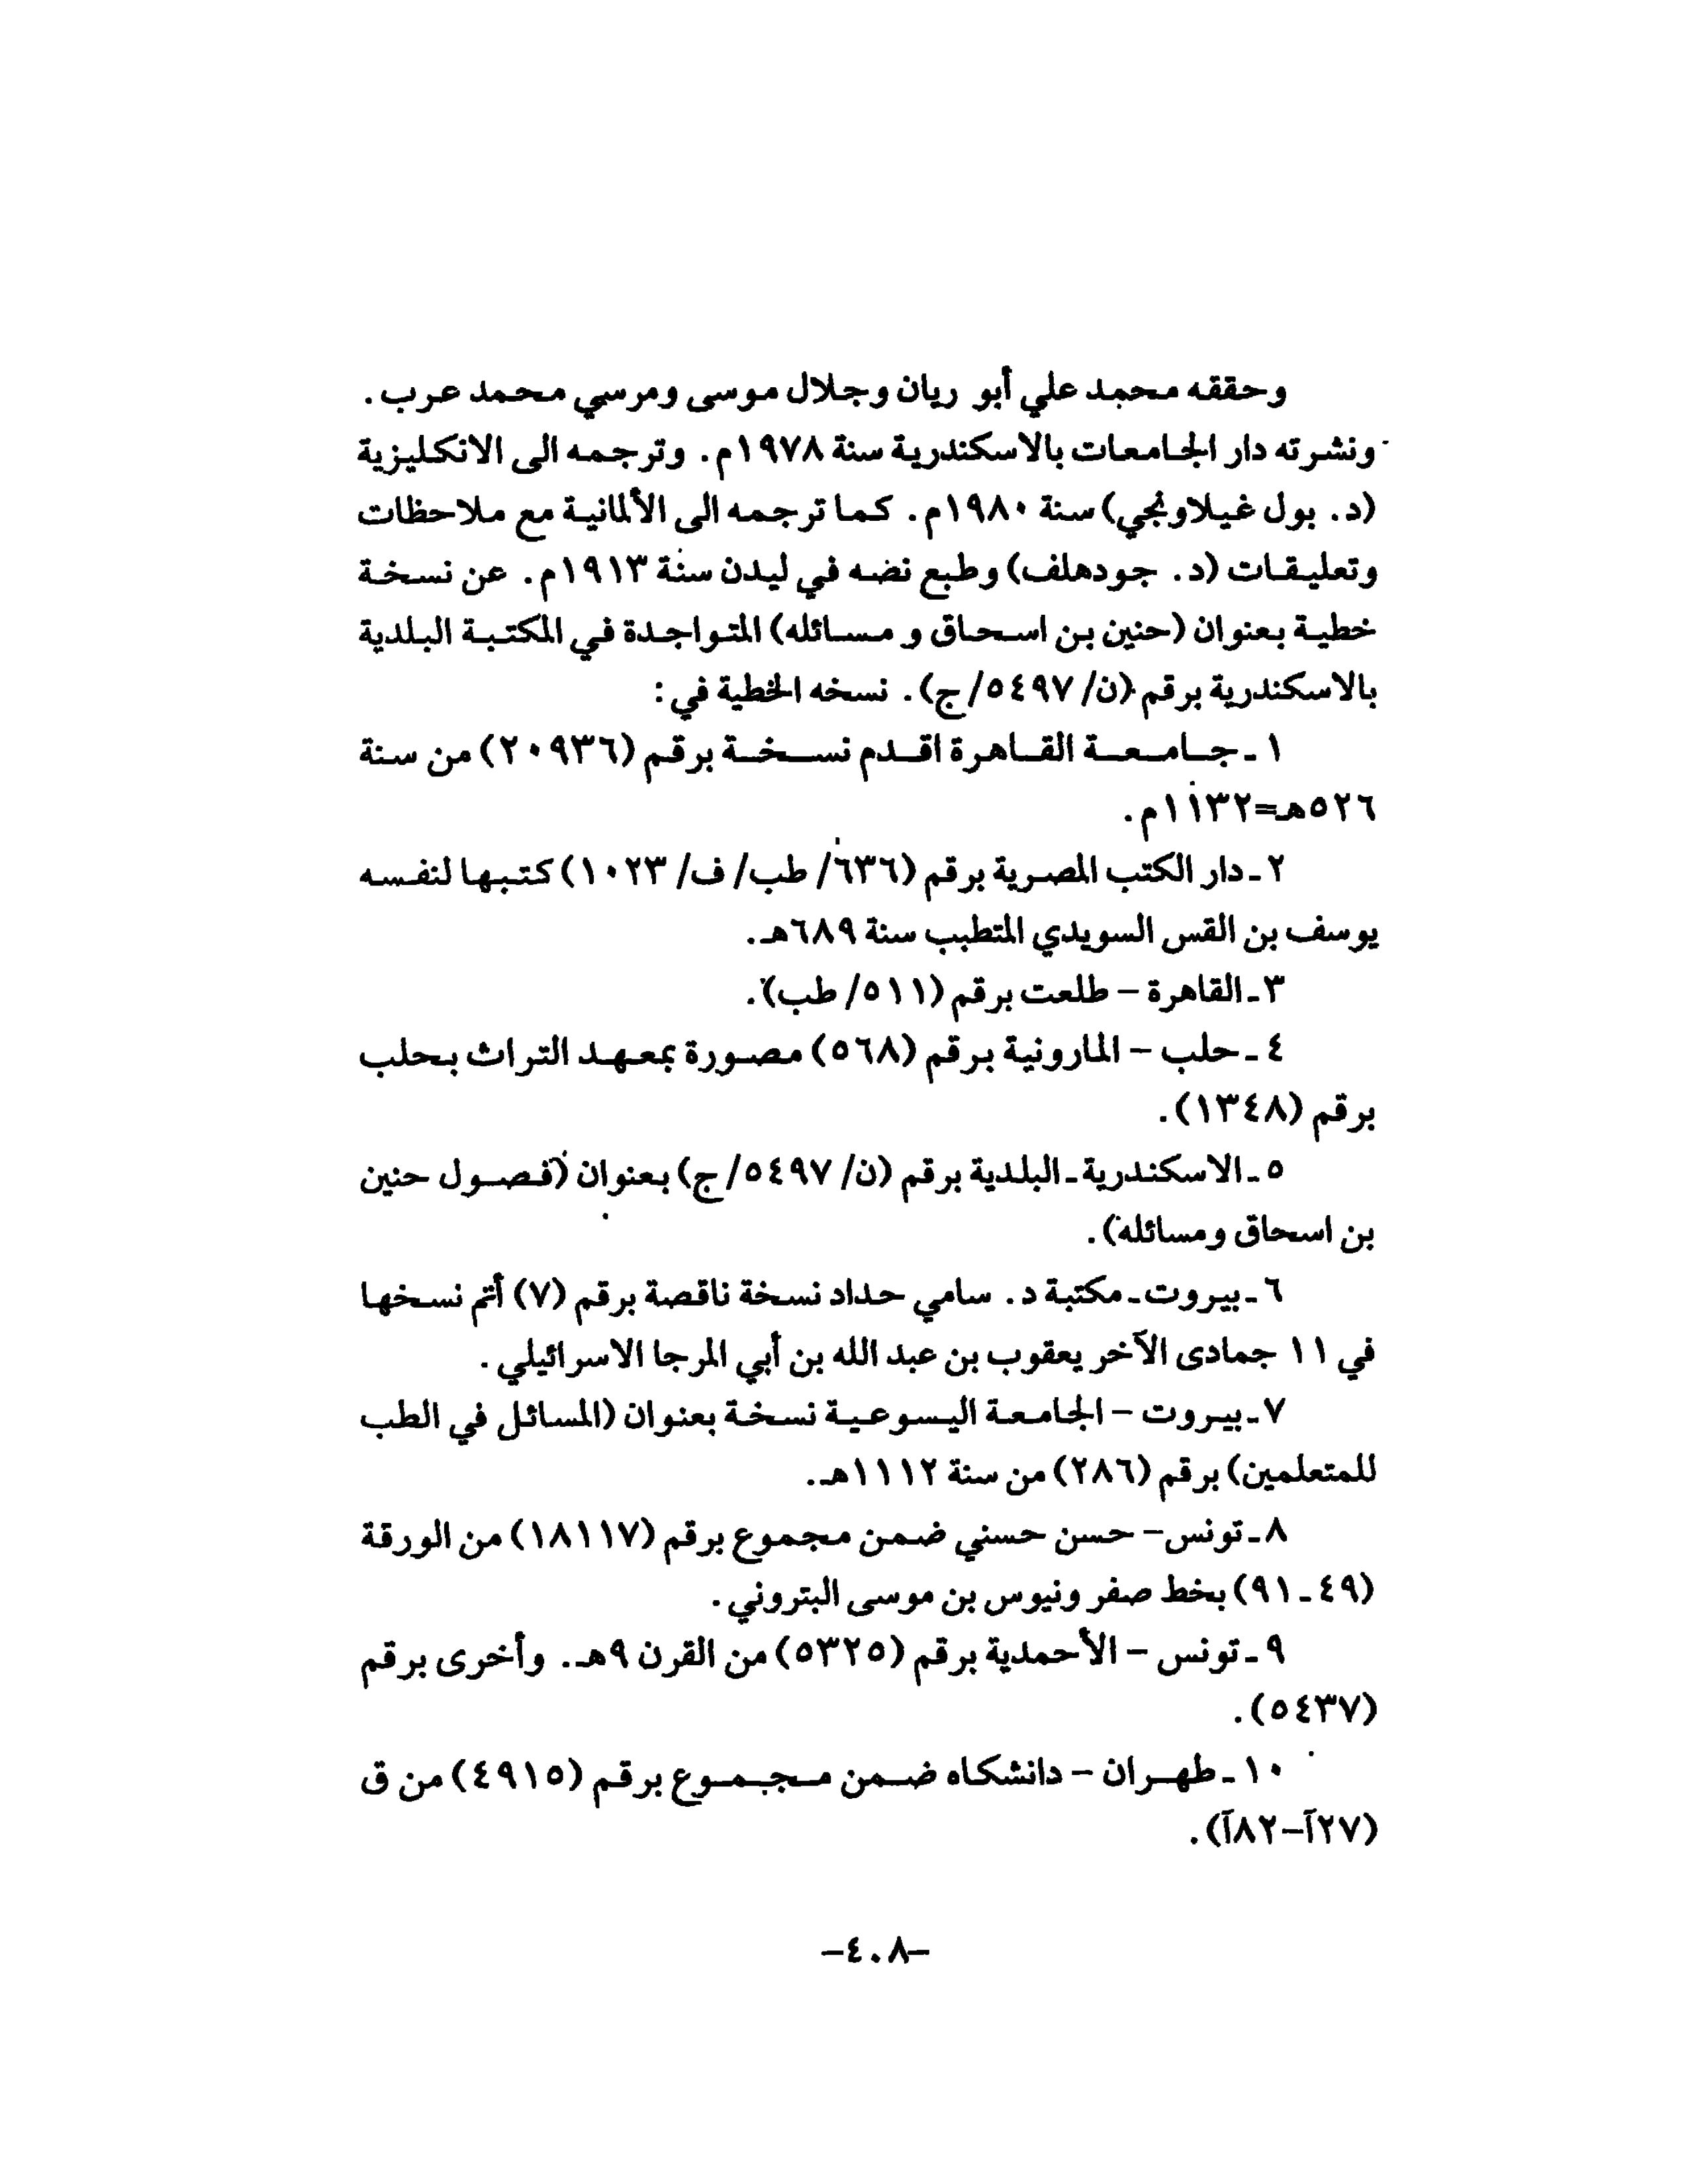 وحققه محمد علي أبو ريان وجلال موسى ومرسي محمد عرب.
ونشرته دار الجامعات بالاسكندرية سنة ١٩٧٨م. وترجمه الى الانكليزية
(د. بول غيلاونجي) سنة ١٩٨٠م. كما ترجمه الى الألمانية مع ملاحظات
وتعليقات (د. جودهلف) وطبع نضه في ليدن سنة ١٩١٣م. عن نسخة
خطية بعنوان (حنين بن اسحاق و مسائله) المتواجدة في المكتبة البلدية
بالاسكندرية برقم (ن/ ٥٤٩٧/ج). نسخه الخطية في:
١ ـ جامعة القاهرة اقدم نسخة برقم (٢٠٩٣٦) من سنة
٥٢٦هـ=١١٣٢م.
٢ ـ دار الكتب المصرية برقم (٦٣٦/ طب/ ف/ ١٠٢٣) كتبها لنفسه
يوسف بن القس السويدي المتطبب سنة ٦٨٩هـ.
٣ ـ القاهرة – طلعت برقم (٥١١/ طب).
٤ ـ حلب – المارونية برقم (٥٦٨) مصورة بمعهد التراث بحلب
برقم (١٣٤٨).
٥ ـ الاسكندرية ـ البلدية برقم (ن/ ٥٤٩٧/ج) بعنوان (فصول حنين
بن اسحاق ومسائله).
٦ ـ بيروت ـ مكتبة د. سامي حداد نسخة ناقصة برقم (٧) أتم نسخها
في ١١ جمادى الآخر يعقوب بن عبد الله بن أبي المرجا الاسرائيلي.
٧ ـ بيروت – الجامعة اليسوعية نسخة بعنوان (المسائل في الطب
للمتعلمين) برقم (٢٨٦) من سنة ١١١٢هـ.
٨ ـ تونس – حسن حسني ضمن مجموع برقم (١٨١١٧) من الورقة
(٤٩ ـ ٩١) بخط صفر ونيوس بن موسى البتروني.
٩ ـ تونس – الأحمدية برقم (٥٣٢٥) من القرن ٩هـ. وأخرى برقم
(٥٤٣٧).
١٠ ـ طهران – دانشكاه ضمن مجموع برقم (٤٩١٥) من ق
(٢٧آ–٨٢آ).
–٤٠٨–